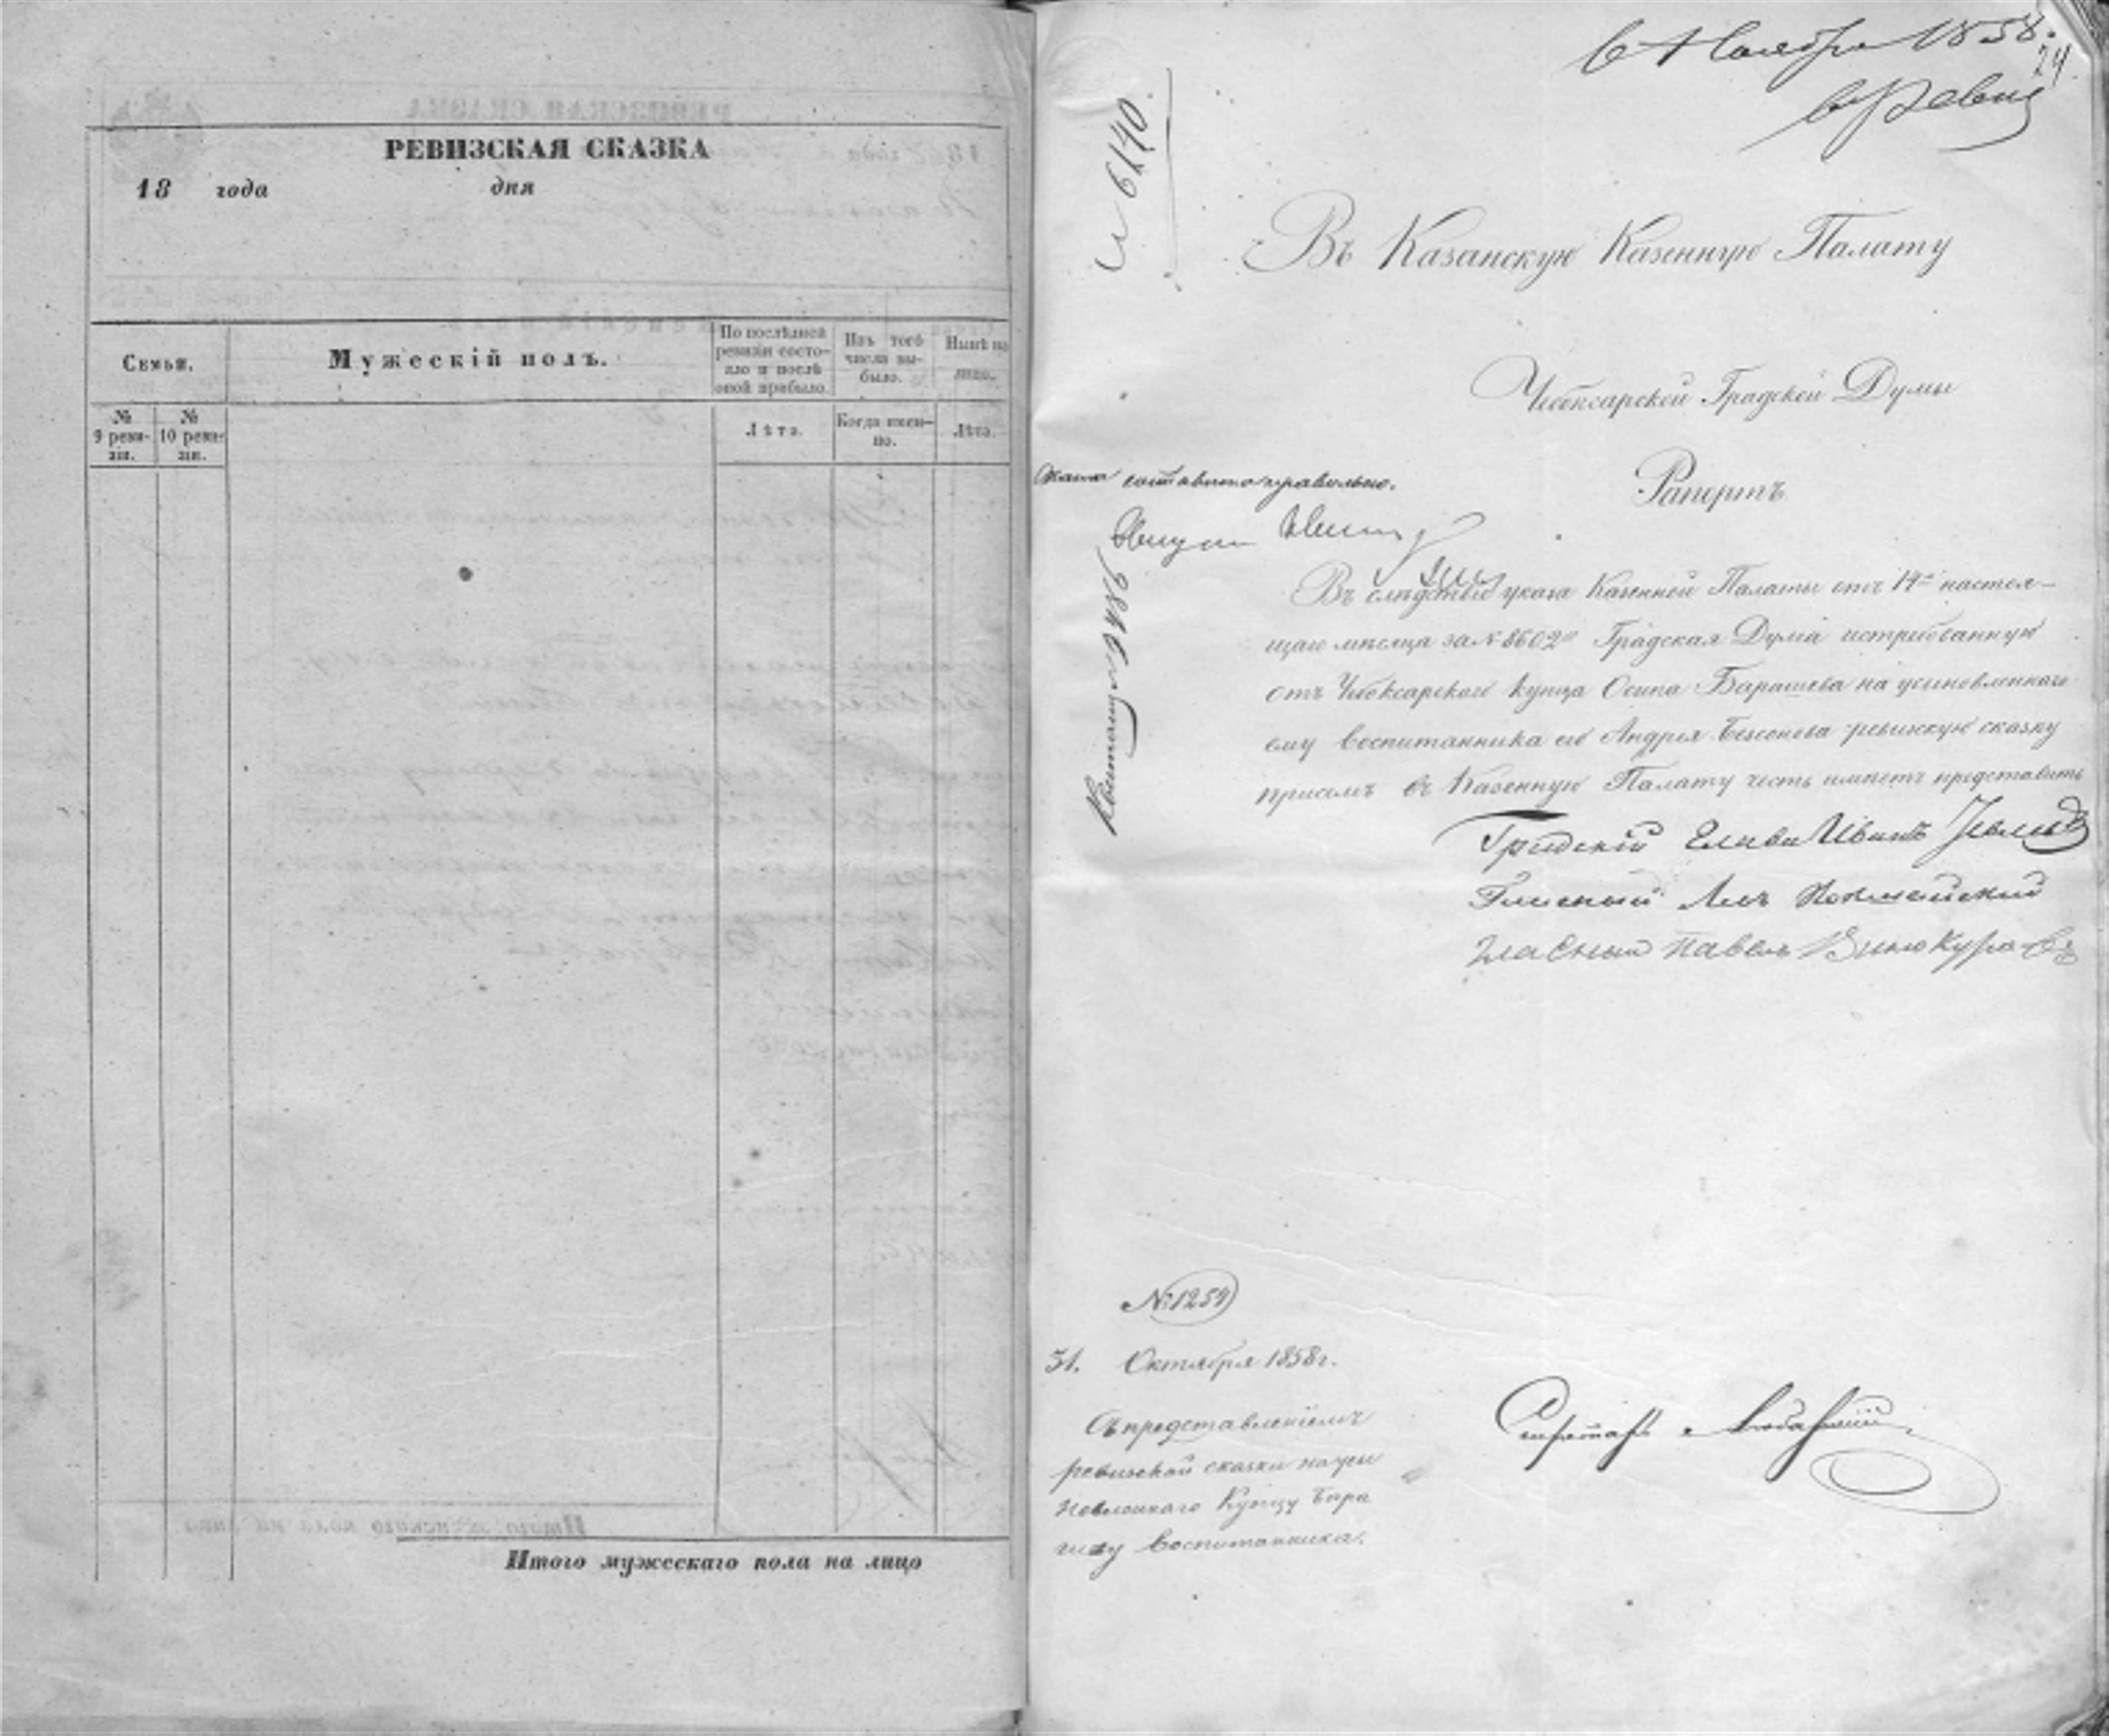 РЕВИЗСКАЯ СКАЗКА
18 года дня
Семьи.
Мужескій полъ.
По послѣдней ревизіи состо-
яло и послѣ оной прибыло.
Изъ того числа вы-
было.
Нынѣ на лицо.
№ 9 реви-
зіи.
№ 10 реви-
зіи.
Лѣта.
Когда имен-
но.
Лѣта.
Итого мужескаго пола на лицо
6 Ноября 1858.
24
№ 6140.
Въ Казанскую Казенную Палату
Чебоксарской Градской Думы
Рапортъ
составлена правильно.
Квитанция № 9486
Въ слѣдствіе указа Казенной Палаты отъ 14го настоя-
щаго мѣсяца за № 8602м Градская Дума истребованную
отъ Чебоксарскаго купца Осипа Барашева на усыновленнаго
ему воспитанника его Андрея Безсонова ревизскую сказку
присемъ въ Казенную Палату честь имѣетъ представить
Градскій Глава Иванъ
Гласный
Гласный Павелъ Винокуровъ
№ 1254
31. Октября 1858 г.
Съ представленіемъ
ревизской сказки на усы
новленнаго Купцу Бара
шеву воспитанника.
Секретарь